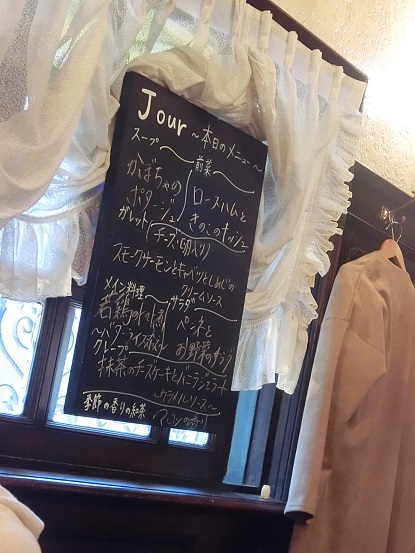 Jour
～本日のメニュー～
スープ～
かぼちゃの
ポタージュ
前菜～
ロースハムと
きのこのキッシュ
ガレット～
(チーズ・卵入り)
スモークサーモンとキャベツとしめじの
クリームソース
メイン料理～
若鶏のトマト煮
～バターライス添え～
サラダ～
ペンネと
お野菜のサラダ
クレープ～
抹茶のチーズケーキとバニラジェラート
～カラメルソース～
季節の香りの紅茶
マロンの香り